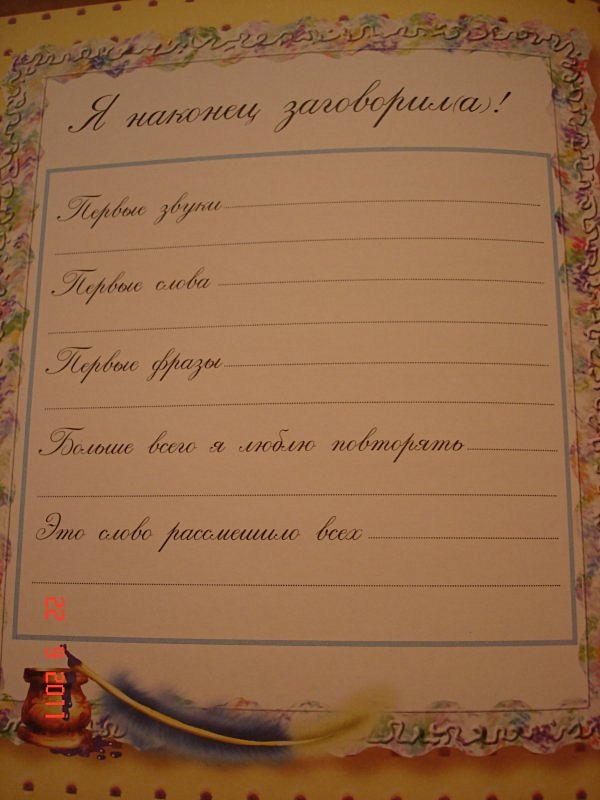 Я наконец заговорил(а)!
Первые звуки
Первые слова
Первые фразы
Больше всего я люблю повторять
Это слово рассмешило всех
22 9 2011